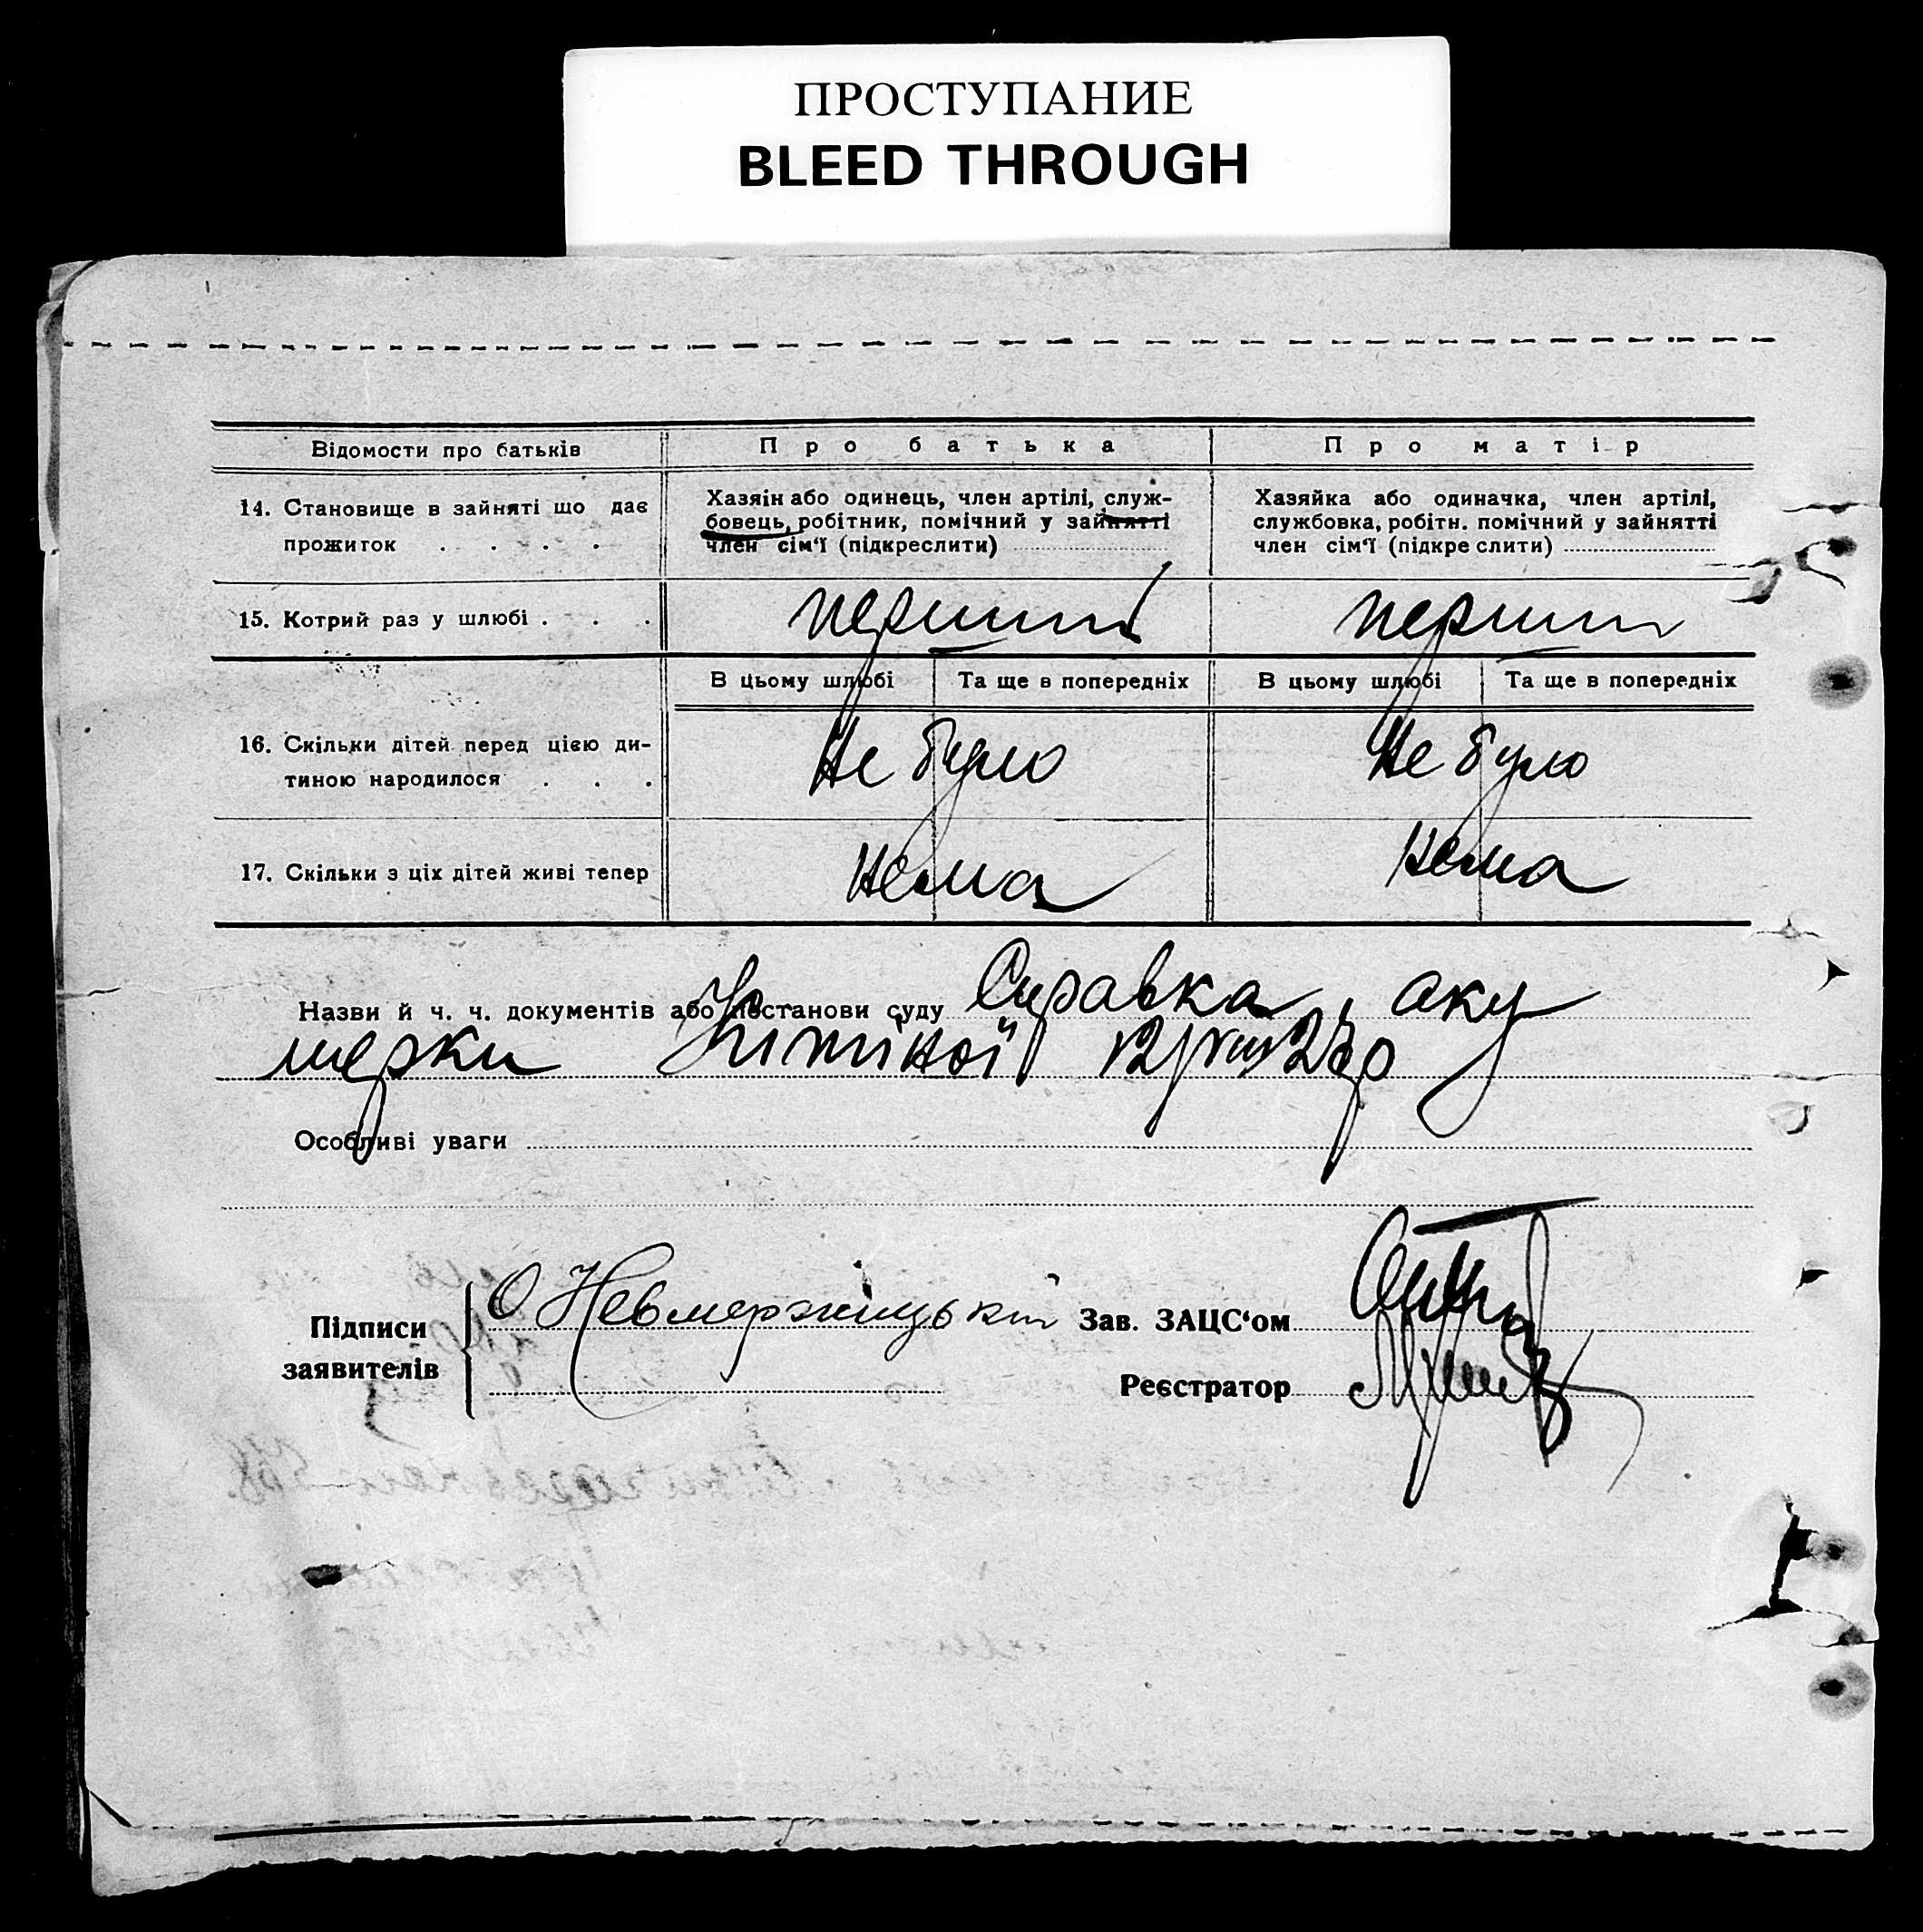 ПРОСТУПАНИЕ
BLEED THROUGH
Відомости про батьків
Про батька
Про матір
14. Становище в зайняті що дає
прожиток . . . .
Хазяін або одинець, член артілі, служ-
бовець, робітник, помічний у зайнятті
член сім‘ї (підкреслити)
Хазяйка або одиначка, член артілі,
службовка, робітн. помічний у зайнятті
член сім‘ї (підкреслити)
15. Котрий раз у шлюбі . . .
перший
перший
В цьому шлюбі
Та ще в попередніх
В цьому шлюбі
Та ще в попередніх
16. Скільки дітей перед цією ди-
тиною народилося . . .
Не було
Не було
17. Скільки з ціх дітей живі тепер
нема
нема
Назви й ч. ч. документів або постанови суду Справка аку
шерки
Особливі уваги
Підписи
заявителів
О Невмержицькій
Зав. ЗАЦС‘ом
Реєстратор